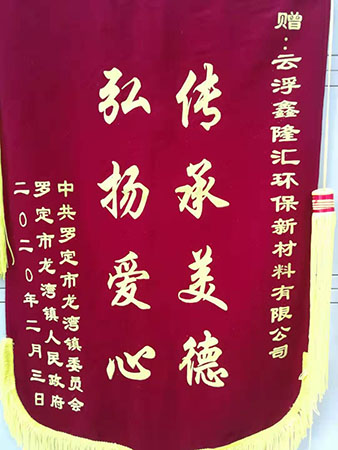 赠:云浮鑫隆汇环保新材料有限公司
传承美德
弘扬爱心
中共罗定市龙湾镇委员会
罗定市龙湾镇人民政府
二〇二〇年二月三日